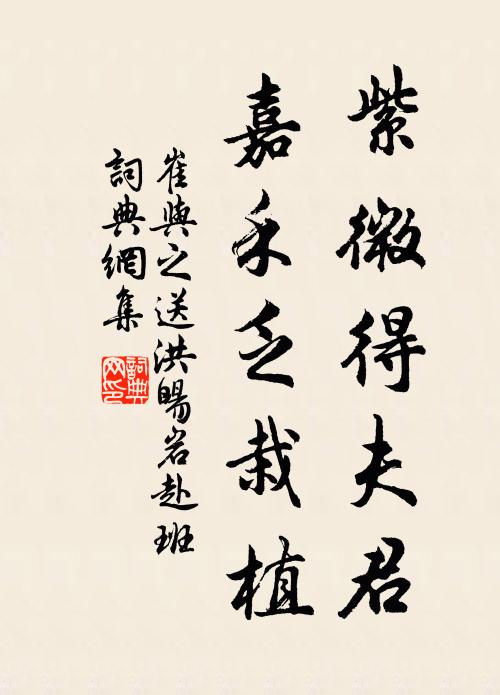 紫微得夫君
嘉禾乏栽植
崔與之送洪暘岩赴班
詞典網集
詞典網印